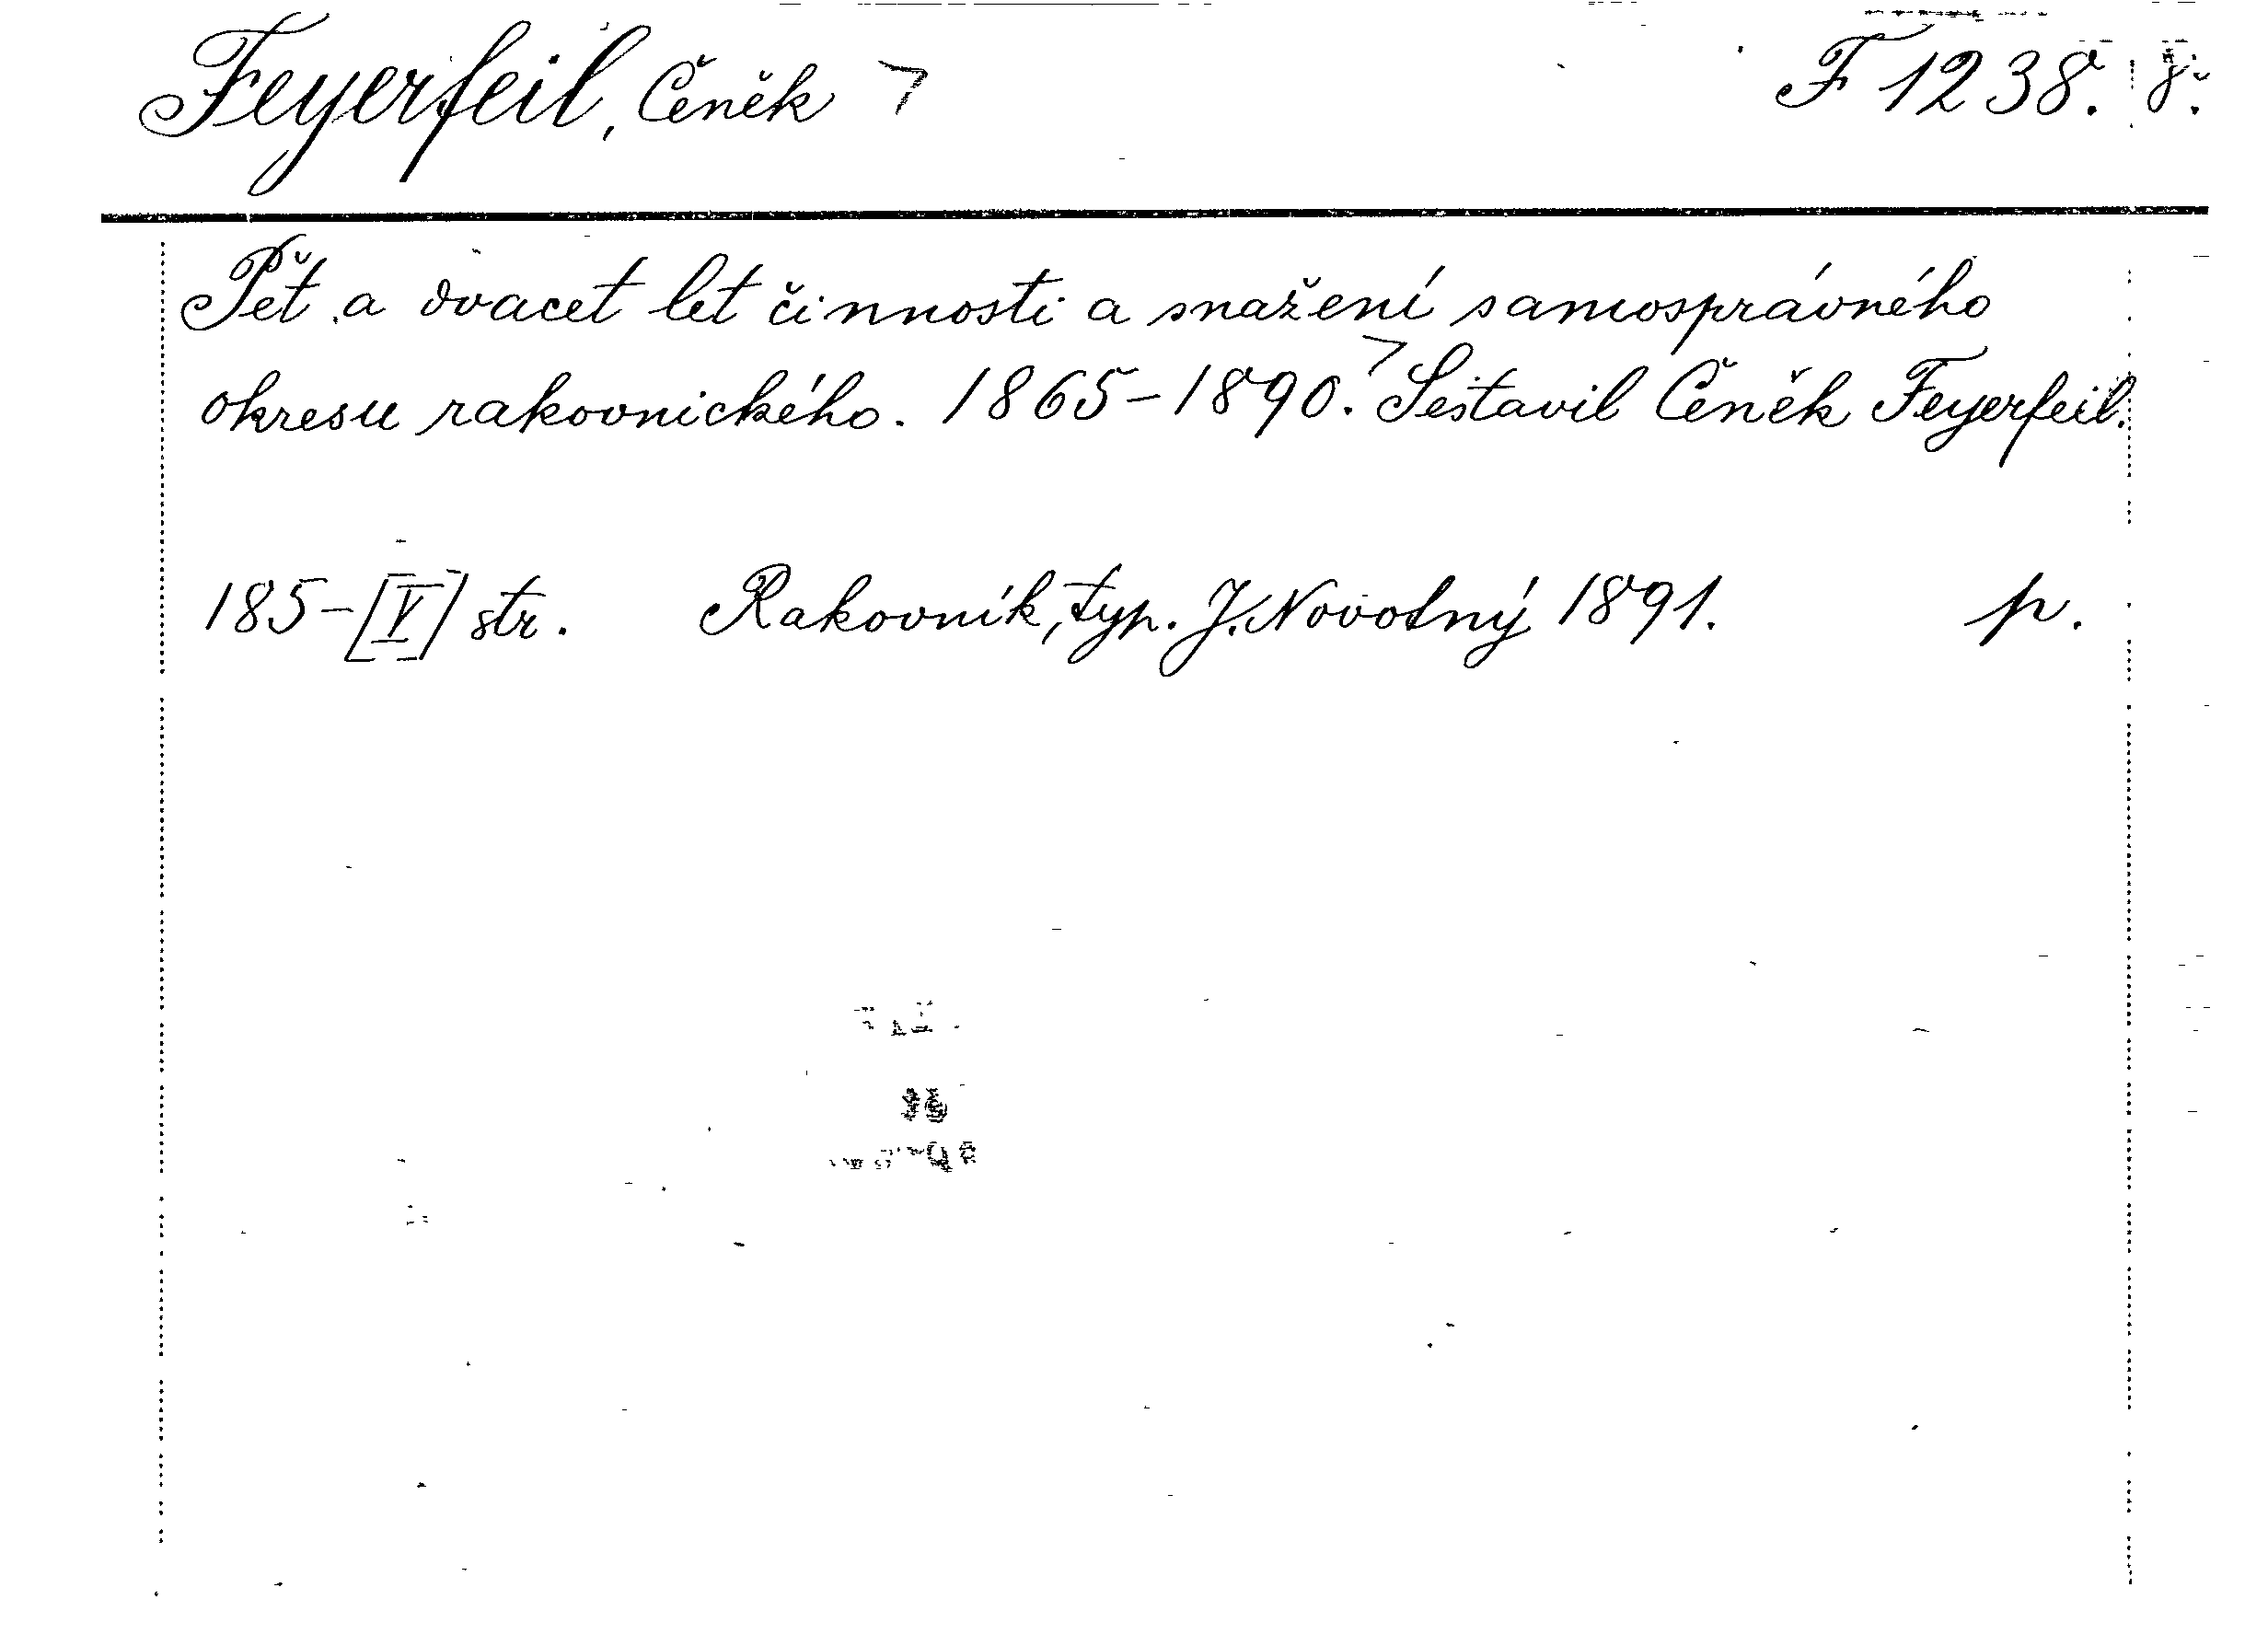 Feyerfeil, Čeněk F 1238.
Pět a dvacet let činnosti a snažení samosprávného
okresu rakovnického. 1865-1890. Sestavil Čeněk Feyerfeil.
185-[V] str. Rakovník, typ. J. Novotný 1891. p.